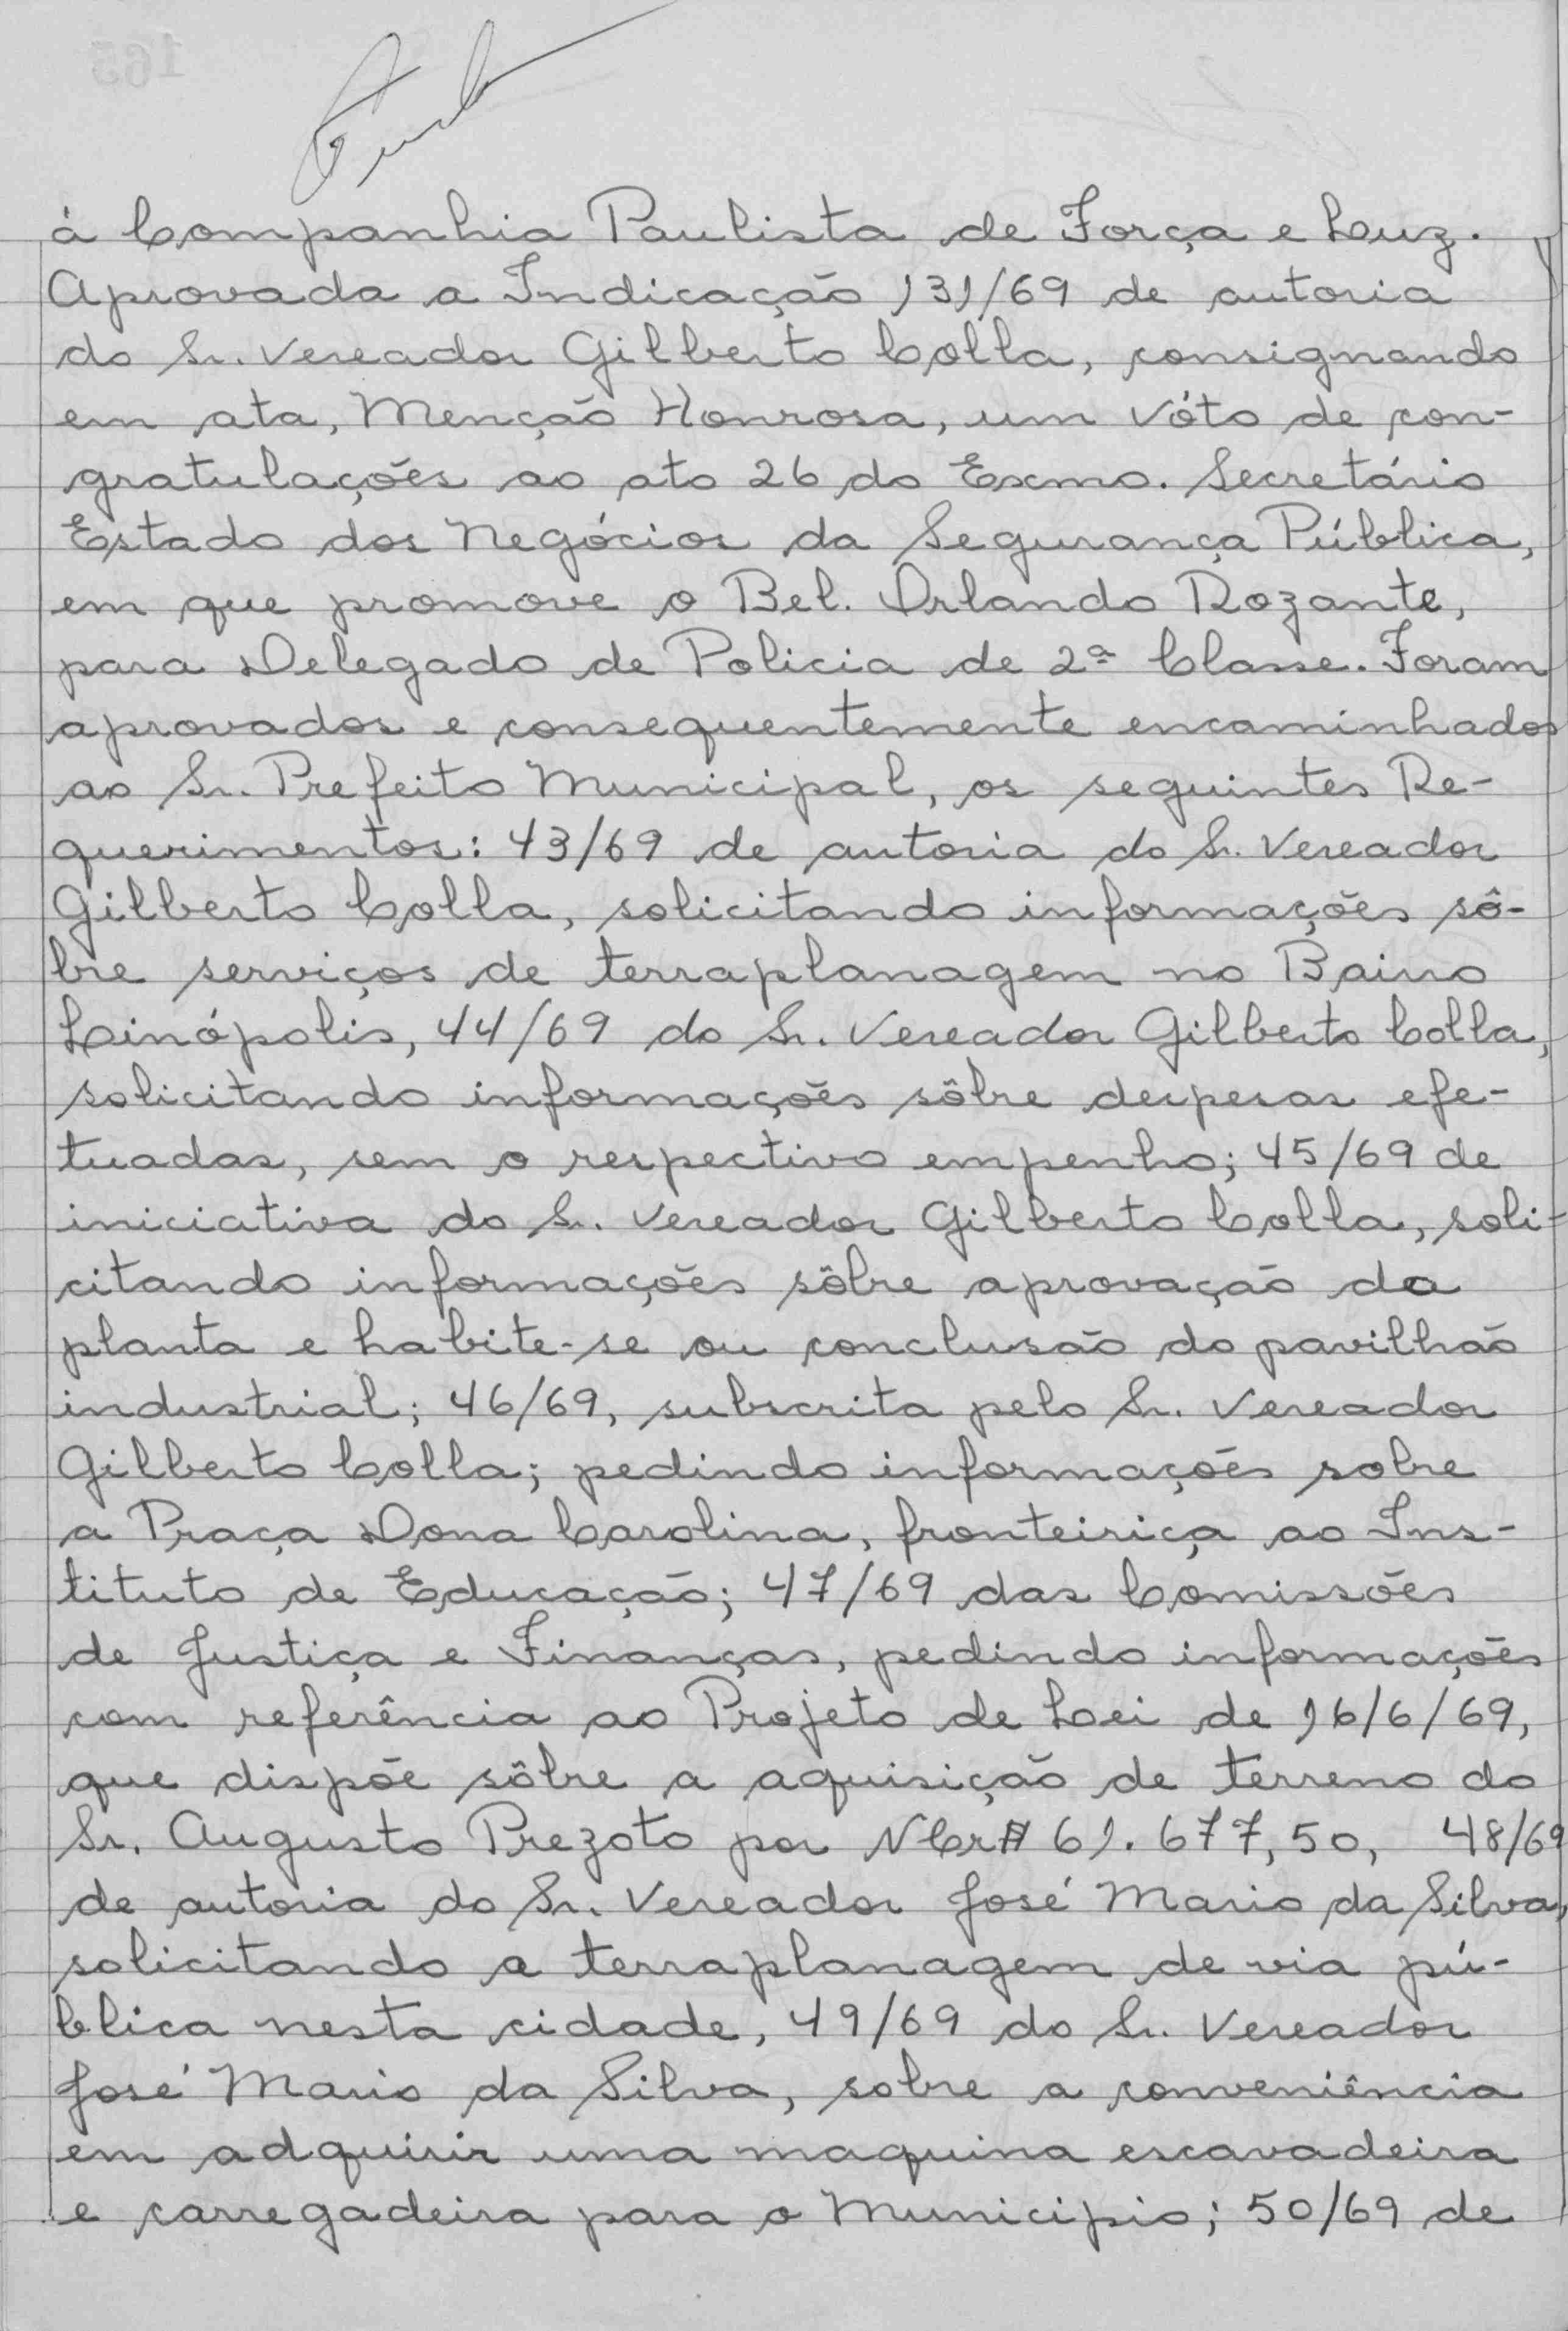 à Companhia Paulista de Força e Luz.
Aprovada a Indicação 131/69 de autoria
do Sr. Vereador Gilberto Colla, consignando
em ata, Menção Honrosa, um Vóto de con-
gratulações ao ato 26 do Exmo. Secretário
Estado dos Negócios da Segurança Pública,
em que promove o Bel. Orlando Rozante,
para Delegado de Policia de 2ª Classe. Foram
aprovados e consequentemente encaminhados
ao Sr. Prefeito Municipal, os seguintes Re-
querimentos: 43/69 de autoria do Sr. Vereador
Gilberto Colla, solicitando informações sô-
bre serviços de terraplanagem no Bairro
Linópolis, 44/69 do Sr. Vereador Gilberto Colla,
solicitando informações sôbre despesas efe-
tuadas, sem o respectivo empenho; 45/69 de
iniciativa do Sr. Vereador Gilberto Colla, soli-
citando informações sôbre aprovação da
planta e habite-se ou conclusão do pavilhão
industrial; 46/69, subscrita pelo Sr. Vereador
Gilberto Colla; pedindo informações sobre
a Praça Dona Carolina, fronteiriça ao Ins-
tituto de Educação; 47/69 das Comissões
de Justiça e Finanças, pedindo informações
com referência ao Projeto de Lei de 16/6/69,
que dispõe sôbre a aquisição de terreno do
Sr. Augusto Prezoto por NCr$ 61.677,50, 48/69
de autoria do Sr. Vereador José Mario da Silva,
solicitando a terraplanagem de via pú-
blica nesta cidade, 49/69 do Sr. Vereador
José Mario da Silva, sobre a conveniência
em adquirir uma maquina escavadeira
e carregadeira para o Municipio; 50/69 de